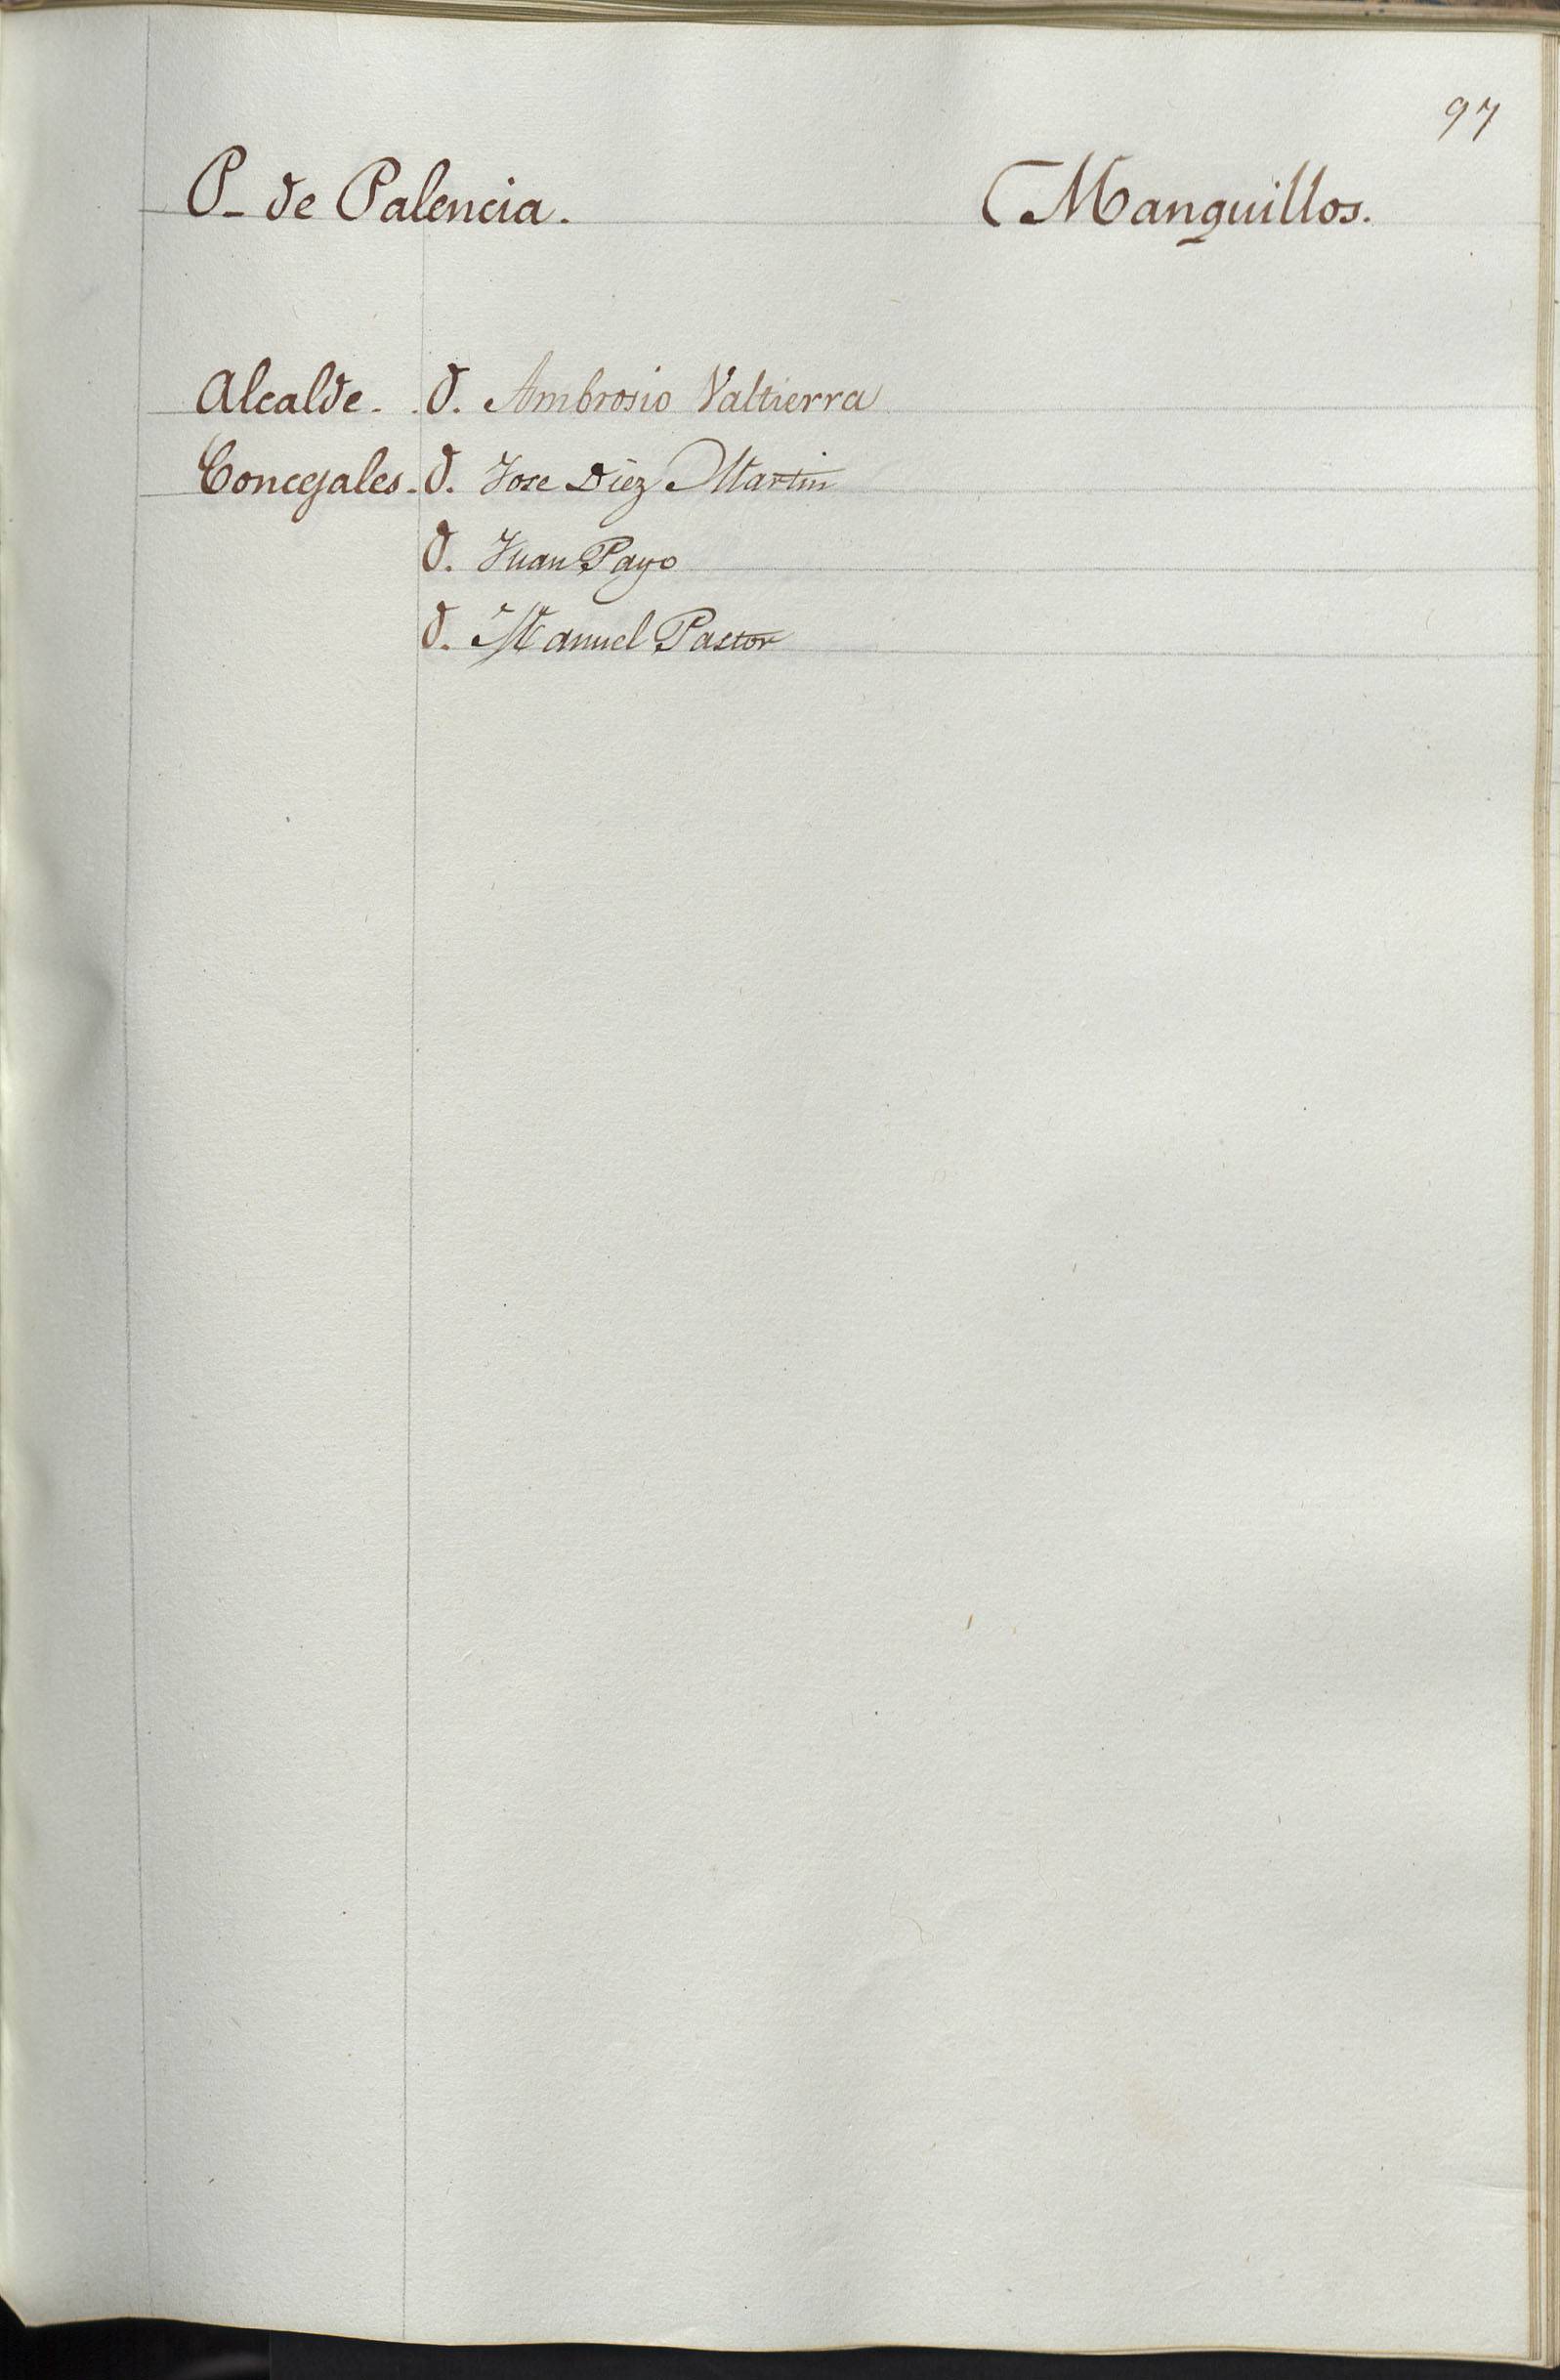 97
P- de Palencia. Manquillos.
Alcalde. . D. Ambrosio Valtierra
Concejales. D. Jose Diez Martin
D. Juan Payo
D. Manuel Pastor